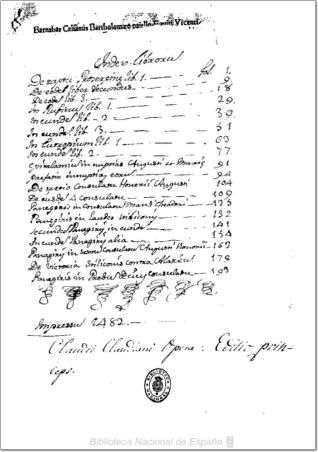 Barnabas Celsanus Bartholomæo
Index librorum
De raptu Proserpinę lib. 1. fol. 1.
De eodem liber secundus 9
De eodem lib. 3. 18
In Rufinum lib. 1. 29.
In eundem lib. 2 39.
In eundem lib. 3. 51
In Eutropium lib. 1. 63
In eundem lib. 2. 77
Epithalamium in nuptias Augusti et Marię 91
prefatio in nuptias 94
De tertio Consulatu Honorii Augusti 104
De 4 consulatu 109
Panegyris in Consulatu Manlii Theodori 123
Panegiris in laudes stiliconis 132
secundus Panegiris in eundem 141
In eundem Panegiris alia 154
Panegiris in Consulatum Augusti Honorii 163
De victoria stiliconis contra Alaricum 179
Panegiris in Probini consulatu 193
Impressus 1482.
Claudii Claudiani Opera: Editio prin-
ceps.
Biblioteca Nacional de España